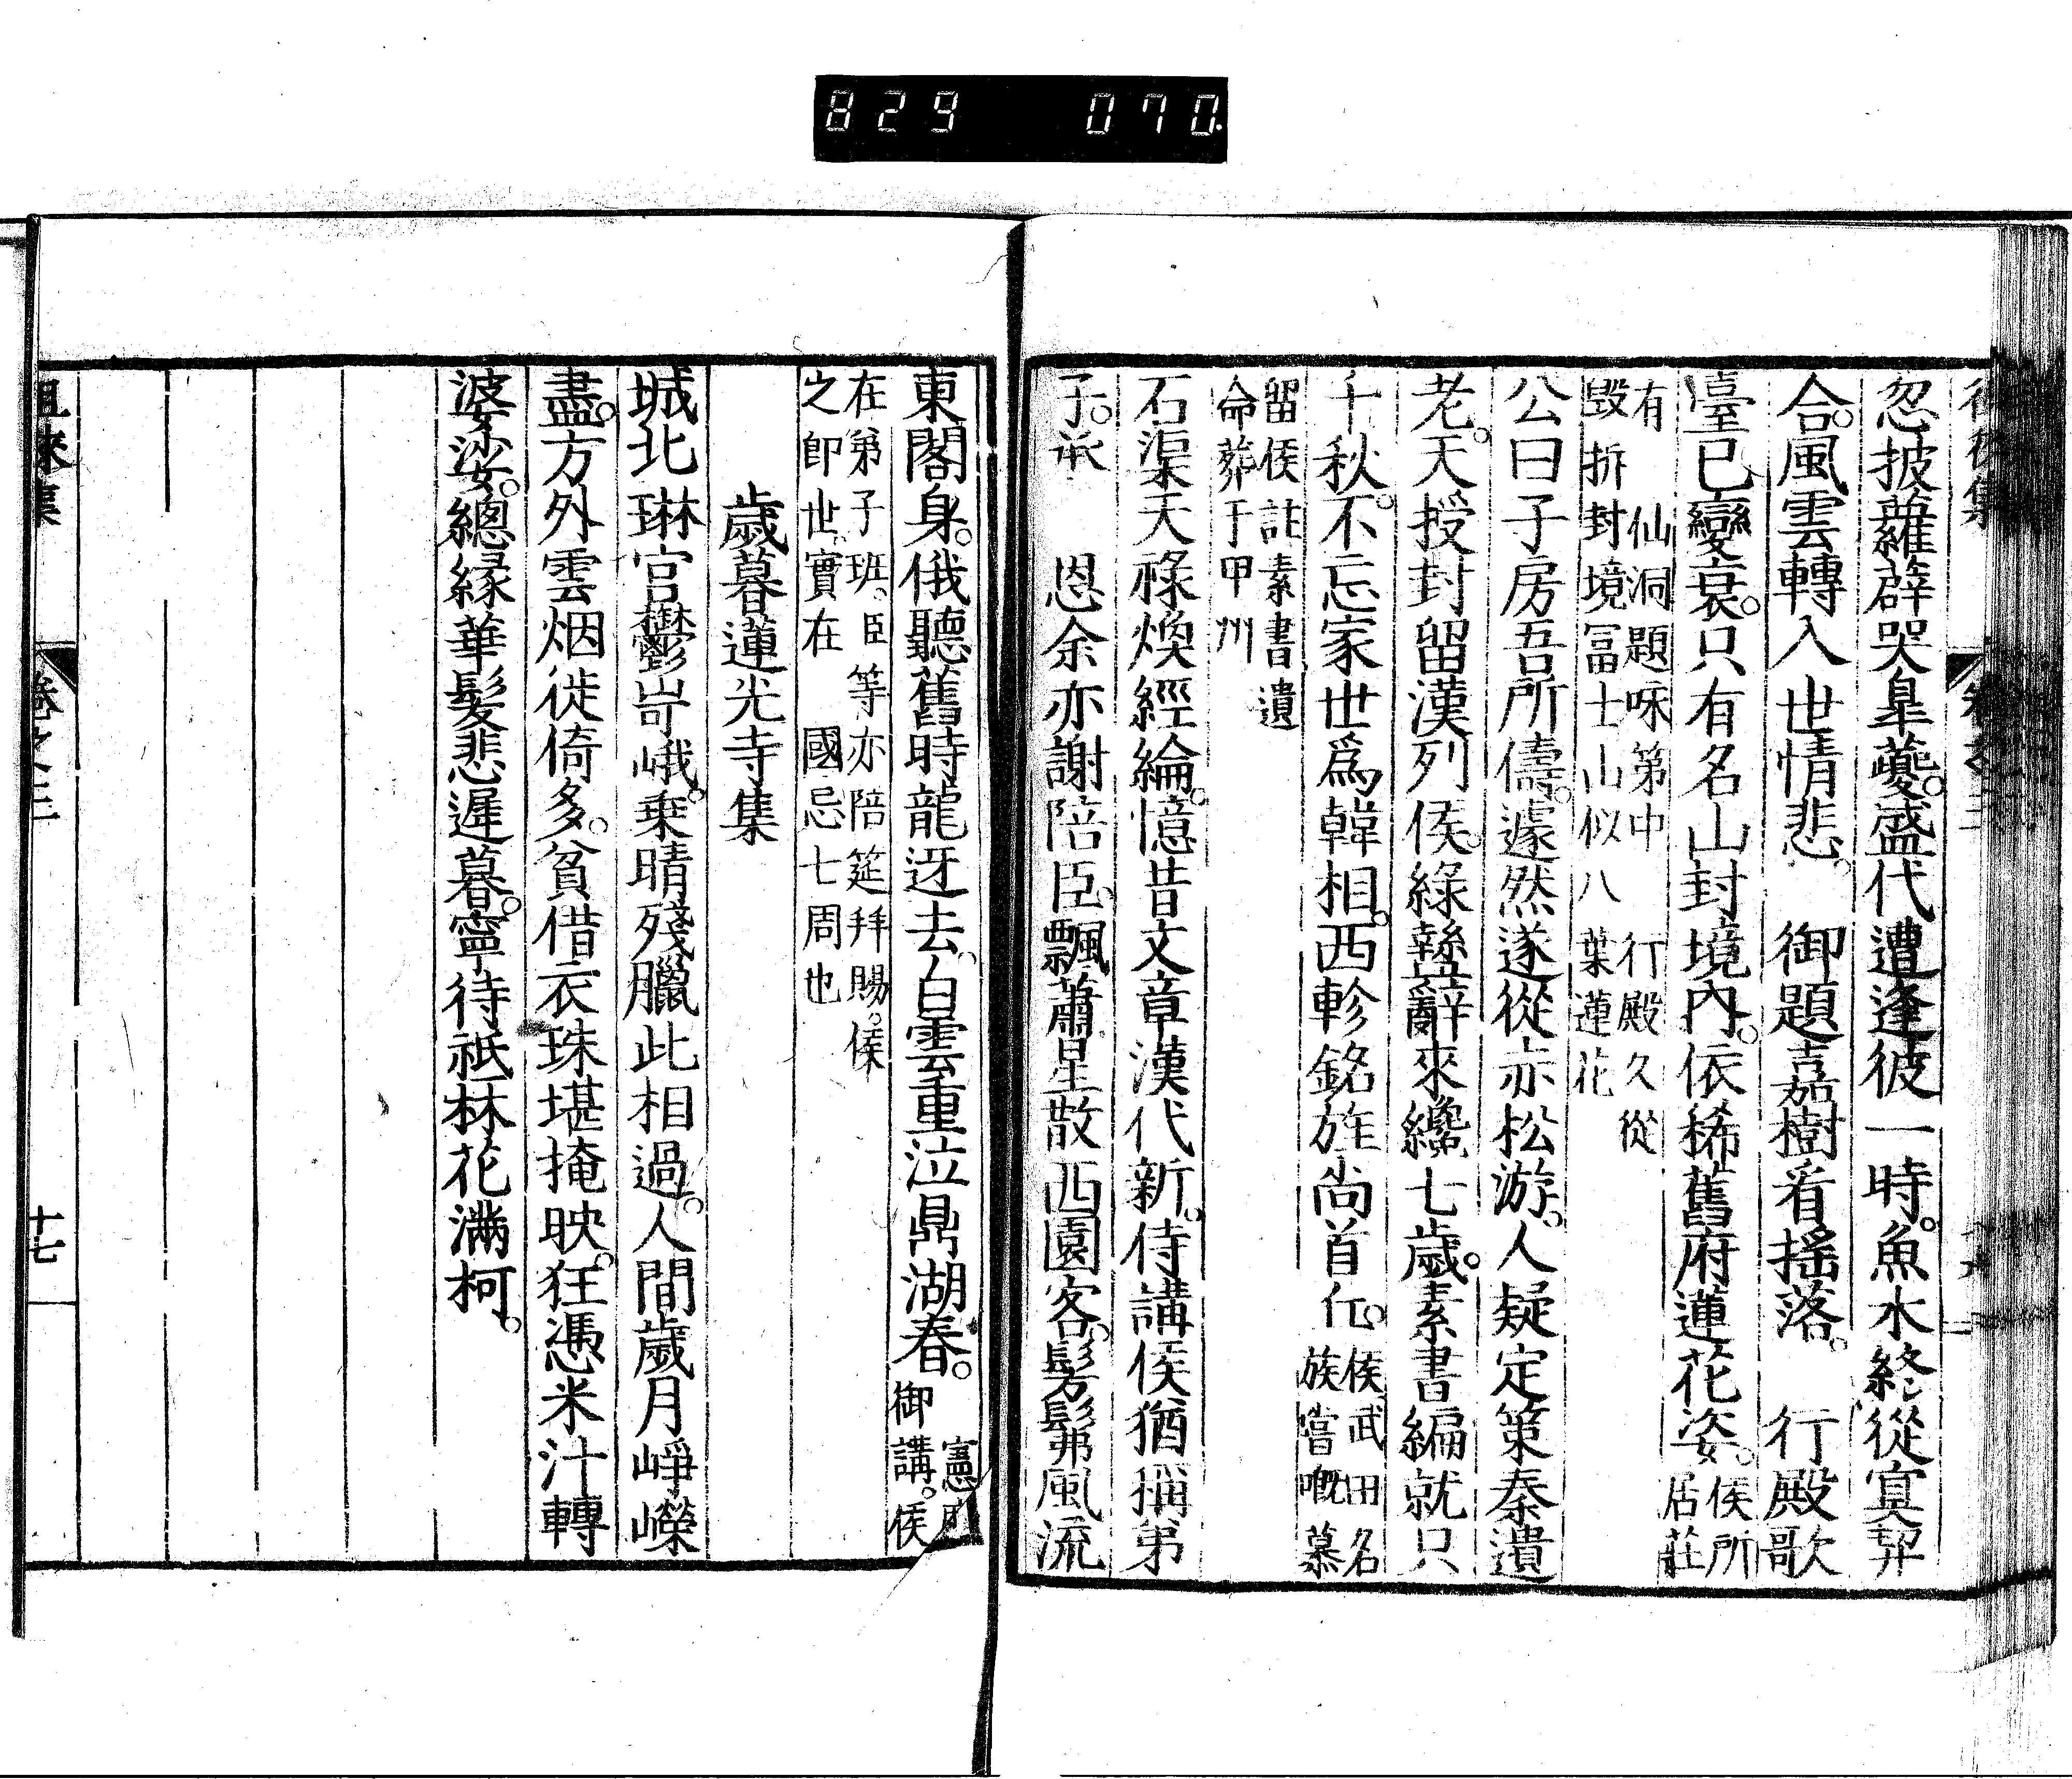 829 070.
忽披蘿薜哭皐夔。盛代遭逢彼一時。魚水終從冥契
合。風雲轉入世情悲。 御題嘉樹看搖落。 行殿歌
臺已變衰。只有名山封境內。依稀舊府蓮花姿。侯所
居莊
有 仙洞題咏第中 行殿久從
毀拆封境冨士山似八葉蓮花
公曰子房吾所儔。遽然遂從赤松游。人疑定策秦遺
老。天授封留漢列侯。綠盭辭來纔七歲。素書編就只
千秋。不忘家世爲韓相。西軫銘旌尚首丘。侯武田名
族嘗嘅慕
留侯註素書遺
命葬于甲州
石渠天祿煥經綸。憶昔文章漢代新。侍講侯猶稱弟
子。承 恩余亦謝陪臣。飄蕭星散西園客。髣髴風流
東閣身。俄聽舊時龍迓去。白雲重泣鼎湖春。憲
御講。侯
在第子班、臣等亦陪筵拜賜。侯
之即世、實在 國忌七周也
歲暮蓮光寺集
城北琳宮鬱岢峨。乗晴殘臘此相過。人間歲月崢嶸
盡。方外雲烟徙倚多。貧借衣珠堪掩映。狂憑米汁轉
婆娑。總緣華髮悲遲暮。寧待祇林花滿柯。
徂徠集 卷之三 十七